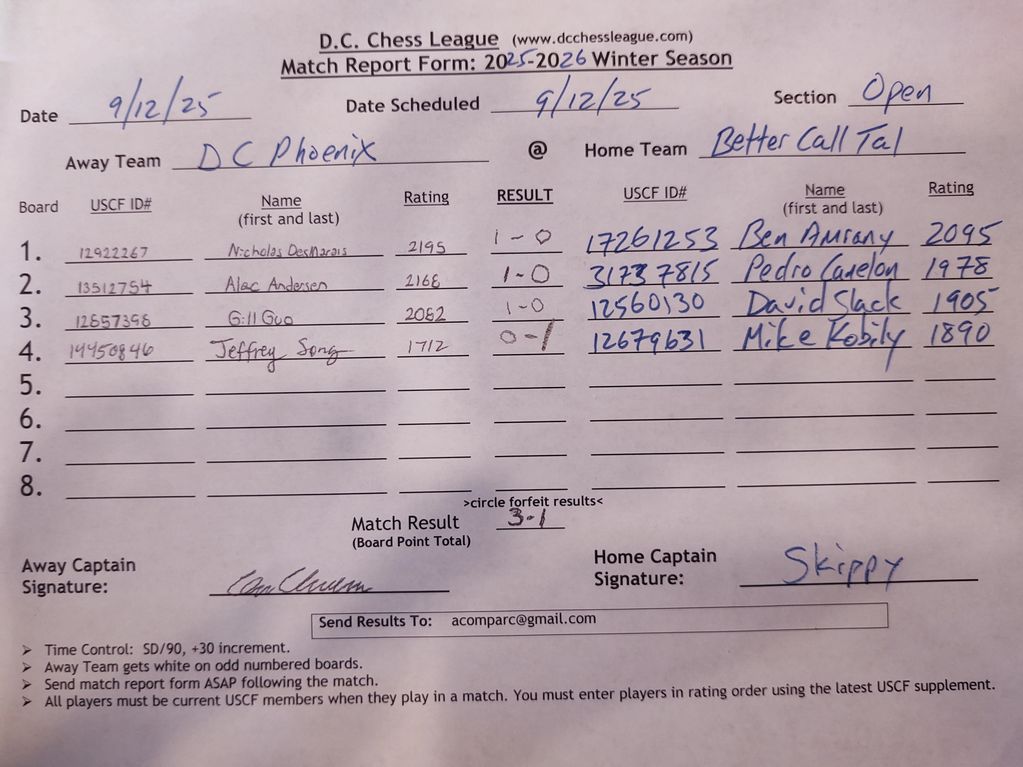 D.C. Chess League (www.dcchessleague.com)
Match Report Form: 2025-2026 Winter Season
Date 9/12/25 Date Scheduled 9/12/25 Section Open
Away Team DC Phoenix @ Home Team Better Call Tal
Board USCF ID# Name (first and last) Rating RESULT USCF ID# Name (first and last) Rating
1. 12922267 Nicholas DesMarais 2195 1-0 17261253 Ben Amrany 2095
2. 13512754 Alac Andersen 2168 1-0 31737815 Pedro Canelon 1978
3. 12857398 Gill Guo 2082 1-0 12560130 David Slack 1905
4. 14450846 Jeffrey Song 1712 0-1 12679631 Mike Kobily 1890
5.
6.
7.
8.
>circle forfeit results<
Match Result 3-1
(Board Point Total)
Away Captain Signature: Home Captain Signature: Skippy
Send Results To: acomparc@gmail.com
➤ Time Control: SD/90, +30 increment.
➤ Away Team gets white on odd numbered boards.
➤ Send match report form ASAP following the match.
➤ All players must be current USCF members when they play in a match. You must enter players in rating order using the latest USCF supplement.